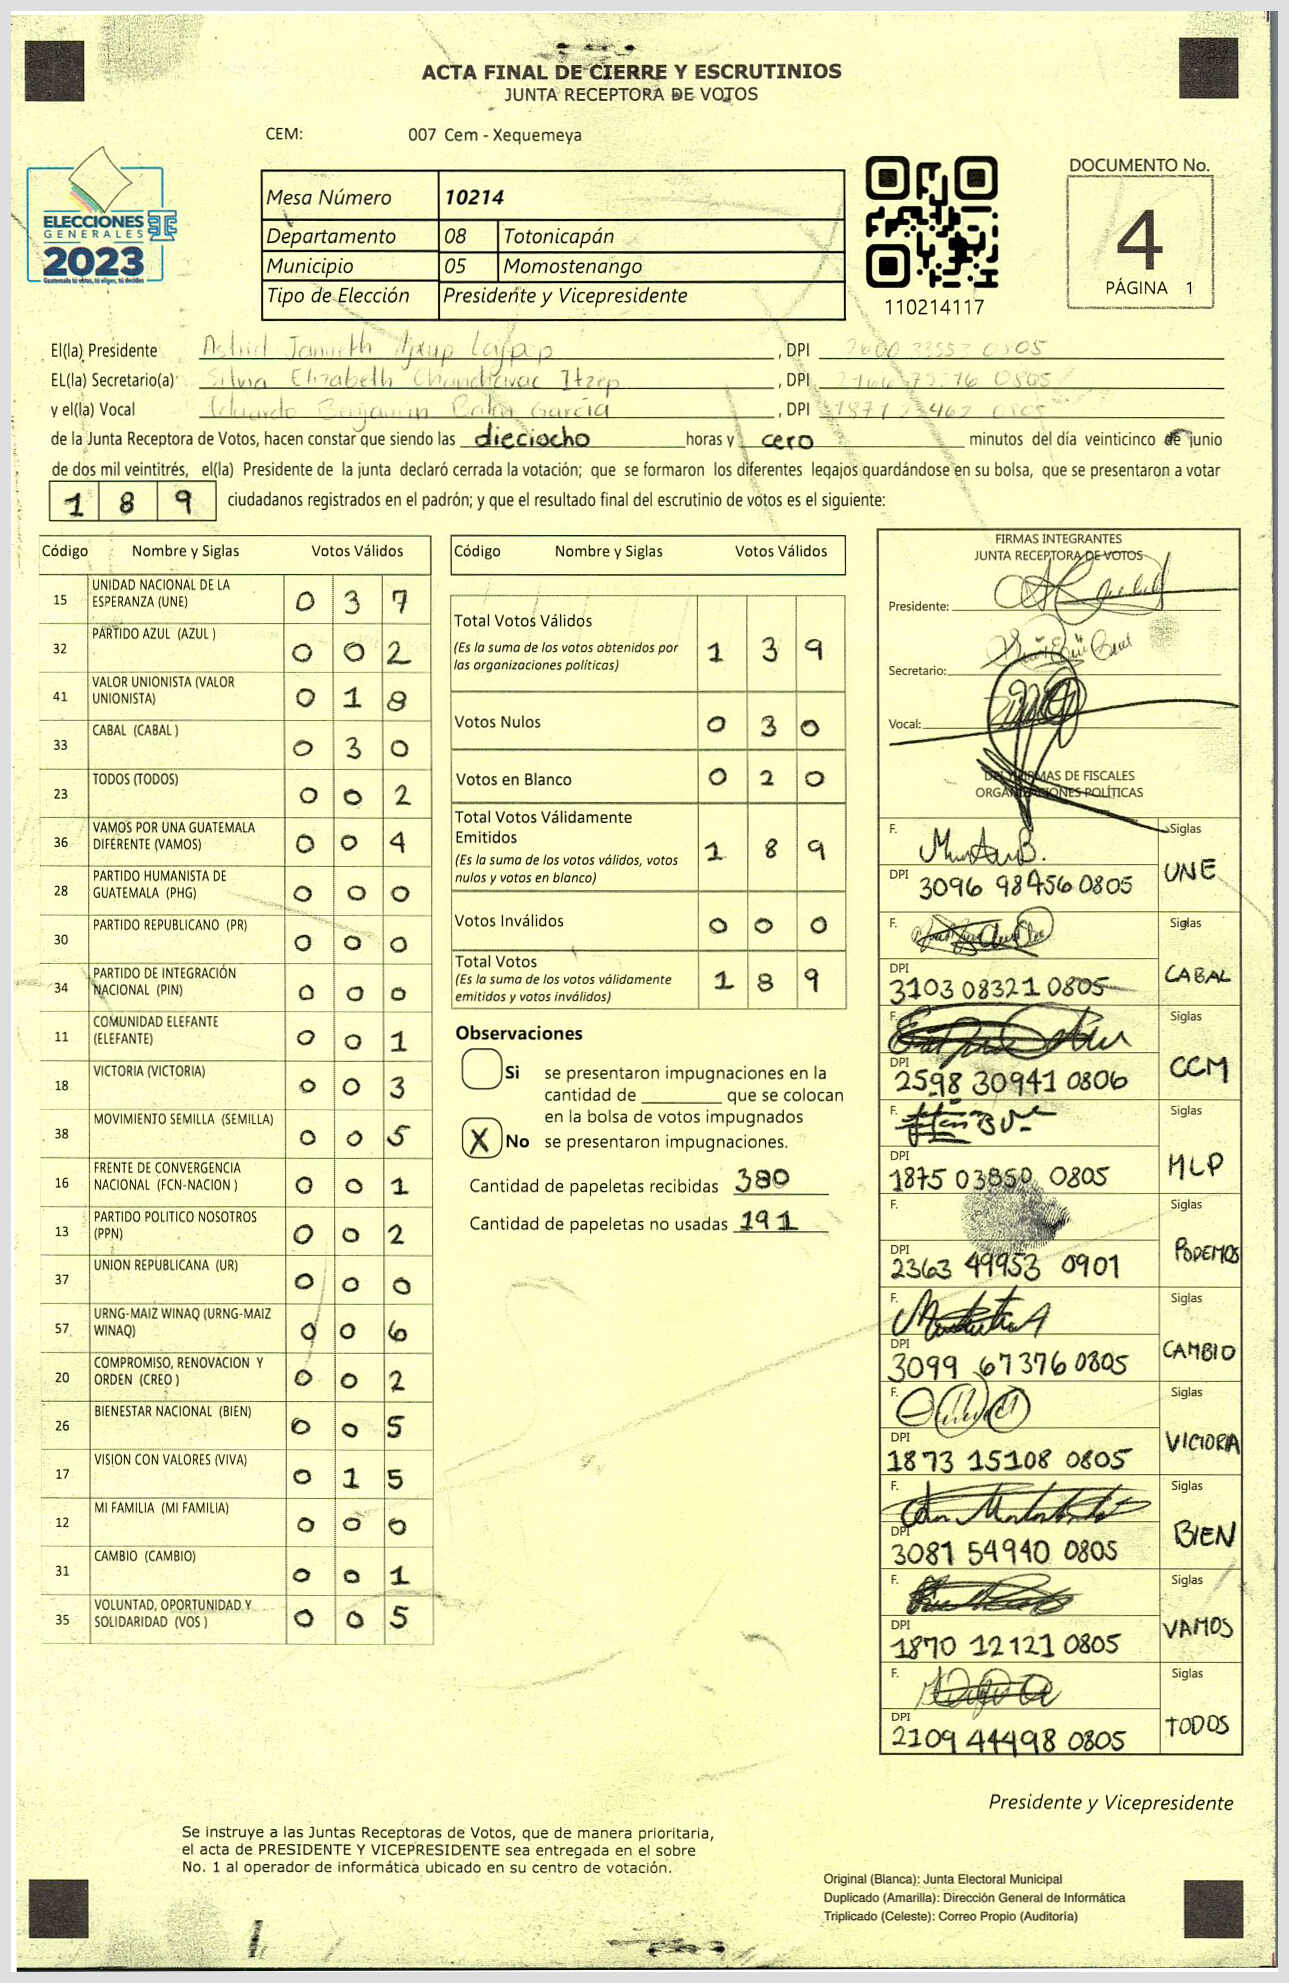 ACTA FINAL DE CIERRE Y ESCRUTINIOS
JUNTA RECEPTORA DE VOTOS
CEM: 007 Cem - Xequemeya
ELECCIONES
GENERALES
2023
Guatemala tú votas, tú eliges, tú decides
Mesa Número 10214
Departamento 08 Totonicapán
Municipio 05 Momostenango
Tipo de Elección Presidente y Vicepresidente
110214117
DOCUMENTO No.
4
PÁGINA 1
El(la) Presidente Astrid , DPI 0805
EL(la) Secretario(a) Silvia Elizabeth Itzep , DPI 0805
y el(la) Vocal Eduardo García , DPI
de la Junta Receptora de Votos, hacen constar que siendo las dieciocho horas y cero minutos del día veinticinco de junio
de dos mil veintitrés, el(la) Presidente de la junta declaró cerrada la votación; que se formaron los diferentes legajos guardándose en su bolsa, que se presentaron a votar
1 8 9 ciudadanos registrados en el padrón; y que el resultado final del escrutinio de votos es el siguiente:
Código Nombre y Siglas Votos Válidos
15 UNIDAD NACIONAL DE LA ESPERANZA (UNE) 0 3 7
32 PARTIDO AZUL (AZUL ) 0 0 2
41 VALOR UNIONISTA (VALOR UNIONISTA) 0 1 8
33 CABAL (CABAL ) 0 3 0
23 TODOS (TODOS) 0 0 2
36 VAMOS POR UNA GUATEMALA DIFERENTE (VAMOS) 0 0 4
28 PARTIDO HUMANISTA DE GUATEMALA (PHG) 0 0 0
30 PARTIDO REPUBLICANO (PR) 0 0 0
34 PARTIDO DE INTEGRACIÓN NACIONAL (PIN) 0 0 0
11 COMUNIDAD ELEFANTE (ELEFANTE) 0 0 1
18 VICTORIA (VICTORIA) 0 0 3
38 MOVIMIENTO SEMILLA (SEMILLA) 0 0 5
16 FRENTE DE CONVERGENCIA NACIONAL (FCN-NACION ) 0 0 1
13 PARTIDO POLITICO NOSOTROS (PPN) 0 0 2
37 UNION REPUBLICANA (UR) 0 0 0
57 URNG-MAIZ WINAQ (URNG-MAIZ WINAQ) 0 0 6
20 COMPROMISO, RENOVACION Y ORDEN (CREO ) 0 0 2
26 BIENESTAR NACIONAL (BIEN) 0 0 5
17 VISION CON VALORES (VIVA) 0 1 5
12 MI FAMILIA (MI FAMILIA) 0 0 0
31 CAMBIO (CAMBIO) 0 0 1
35 VOLUNTAD, OPORTUNIDAD Y SOLIDARIDAD (VOS ) 0 0 5
Código Nombre y Siglas Votos Válidos
Total Votos Válidos 1 3 9
(Es la suma de los votos obtenidos por
las organizaciones politicas)
Votos Nulos 0 3 0
Votos en Blanco 0 2 0
Total Votos Válidamente
Emitidos 1 8 9
(Es la suma de los votos válidos, votos
nulos y votos en blanco)
Votos Inválidos 0 0 0
Total Votos 1 8 9
(Es la suma de los votos válidamente
emitidos y votos inválidos)
Observaciones
Si se presentaron impugnaciones en la
cantidad de ________ que se colocan
en la bolsa de votos impugnados
X No se presentaron impugnaciones.
Cantidad de papeletas recibidas 380
Cantidad de papeletas no usadas 191
FIRMAS INTEGRANTES
JUNTA RECEPTORA DE VOTOS
Presidente:
Secretario:
Vocal:
DPI Y FIRMAS DE FISCALES
ORGANIZACIONES POLÍTICAS
F. Siglas
DPI 3096 98456 0805 UNE
F. Siglas
DPI 3103 08321 0805 CABAL
F. Siglas
DPI 2598 30941 0806 CCM
F. Siglas
DPI 1875 03850 0805 MLP
F. Siglas
DPI 2363 49953 0901 PODEMOS
F. Siglas
DPI 3099 67376 0805 CAMBIO
F. Siglas
DPI 1873 15108 0805 VICTORIA
F. Siglas
DPI 3081 54940 0805 BIEN
F. Siglas
DPI 1870 12121 0805 VAMOS
F. Siglas
DPI 2109 44498 0805 TODOS
Presidente y Vicepresidente
Se instruye a las Juntas Receptoras de Votos, que de manera prioritaria,
el acta de PRESIDENTE Y VICEPRESIDENTE sea entregada en el sobre
No. 1 al operador de informática ubicado en su centro de votación.
Original (Blanca): Junta Electoral Municipal
Duplicado (Amarilla): Dirección General de Informática
Triplicado (Celeste): Correo Propio (Auditoría)